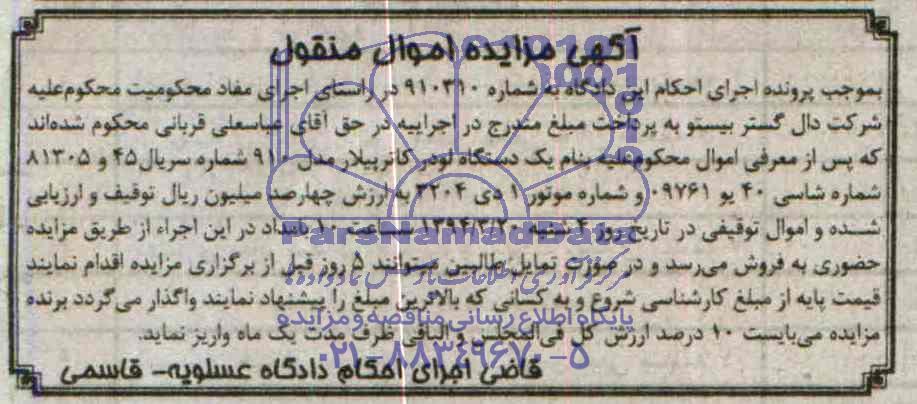 آگهی مزایده اموال منقول
بموجب پرونده اجرای احکام این دادگاه به شماره ۹۱۰۳۱۰ در راستای اجرای مفاد محکومیت محکوم‌علیه
شرکت دال گستر بیستو به پرداخت مبلغ مندرج در اجراییه در حق آقای عباسعلی قربانی محکوم شده‌اند
که پس از معرفی اموال محکوم‌علیه بنام یک دستگاه لودر کاترپیلار مدل ۹۱۰ شماره سریال ۴۵ و ۸۱۳۰۵
شماره شاسی ۴۰ یو ۰۹۷۶۱ و شماره موتور ۱ دی ۳۲۰۴ به ارزش چهارصد میلیون ریال توقیف و ارزیابی
شده و اموال توقیفی در تاریخ روز ۴ شنبه ۱۳۹۴/۳/۲۰ ساعت ۱۰ بامداد در این اجراء از طریق مزایده
حضوری به فروش می‌رسد و در صورت تمایل طالبین میتوانند ۵ روز قبل از برگزاری مزایده اقدام نمایند
قیمت پایه از مبلغ کارشناسی شروع و به کسانی که بالاترین مبلغ را پیشنهاد نمایند واگذار می‌گردد برنده
مزایده می‌بایست ۱۰ درصد ارزش کل فی‌المجلس و الباقی ظرف مدت یک ماه واریز نماید.
قاضی اجرای احکام دادگاه عسلویه- قاسمی
ParsNamadData
مرکز فرآوری اطلاعات پارس نماد داده‌ها
پایگاه اطلاع رسانی مناقصه و مزایده
۰۲۱-۸۸۳۴۹۶۷۰-۵